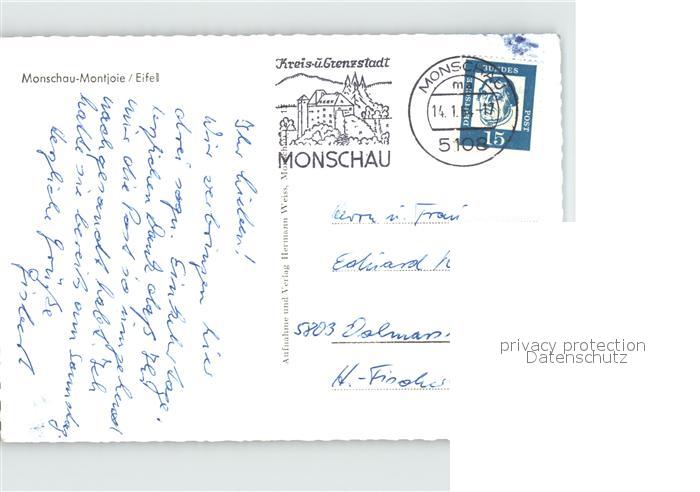 Monschau-Montjoie / Eifel
Kreis-u. Grenzstadt
MONSCHAU
MONSCHAU
14.1.
5108
DEUTSCHE BUNDESPOST
15
Ihr Lieben!
Wir verbringen hier
drei sogn. Einkehrtage.
herzlichen Dank daß Ihr
mir die Post so umgehend
nachgesandt habt. Ich
habe sie bereits am Samstag.
Herzliche Grüße
Aufnahme und Verlag Hermann Weiss, Monschau
Herrn u. Frau
Eduard
5803 Volmars
H.-Fischer
privacy protection
Datenschutz